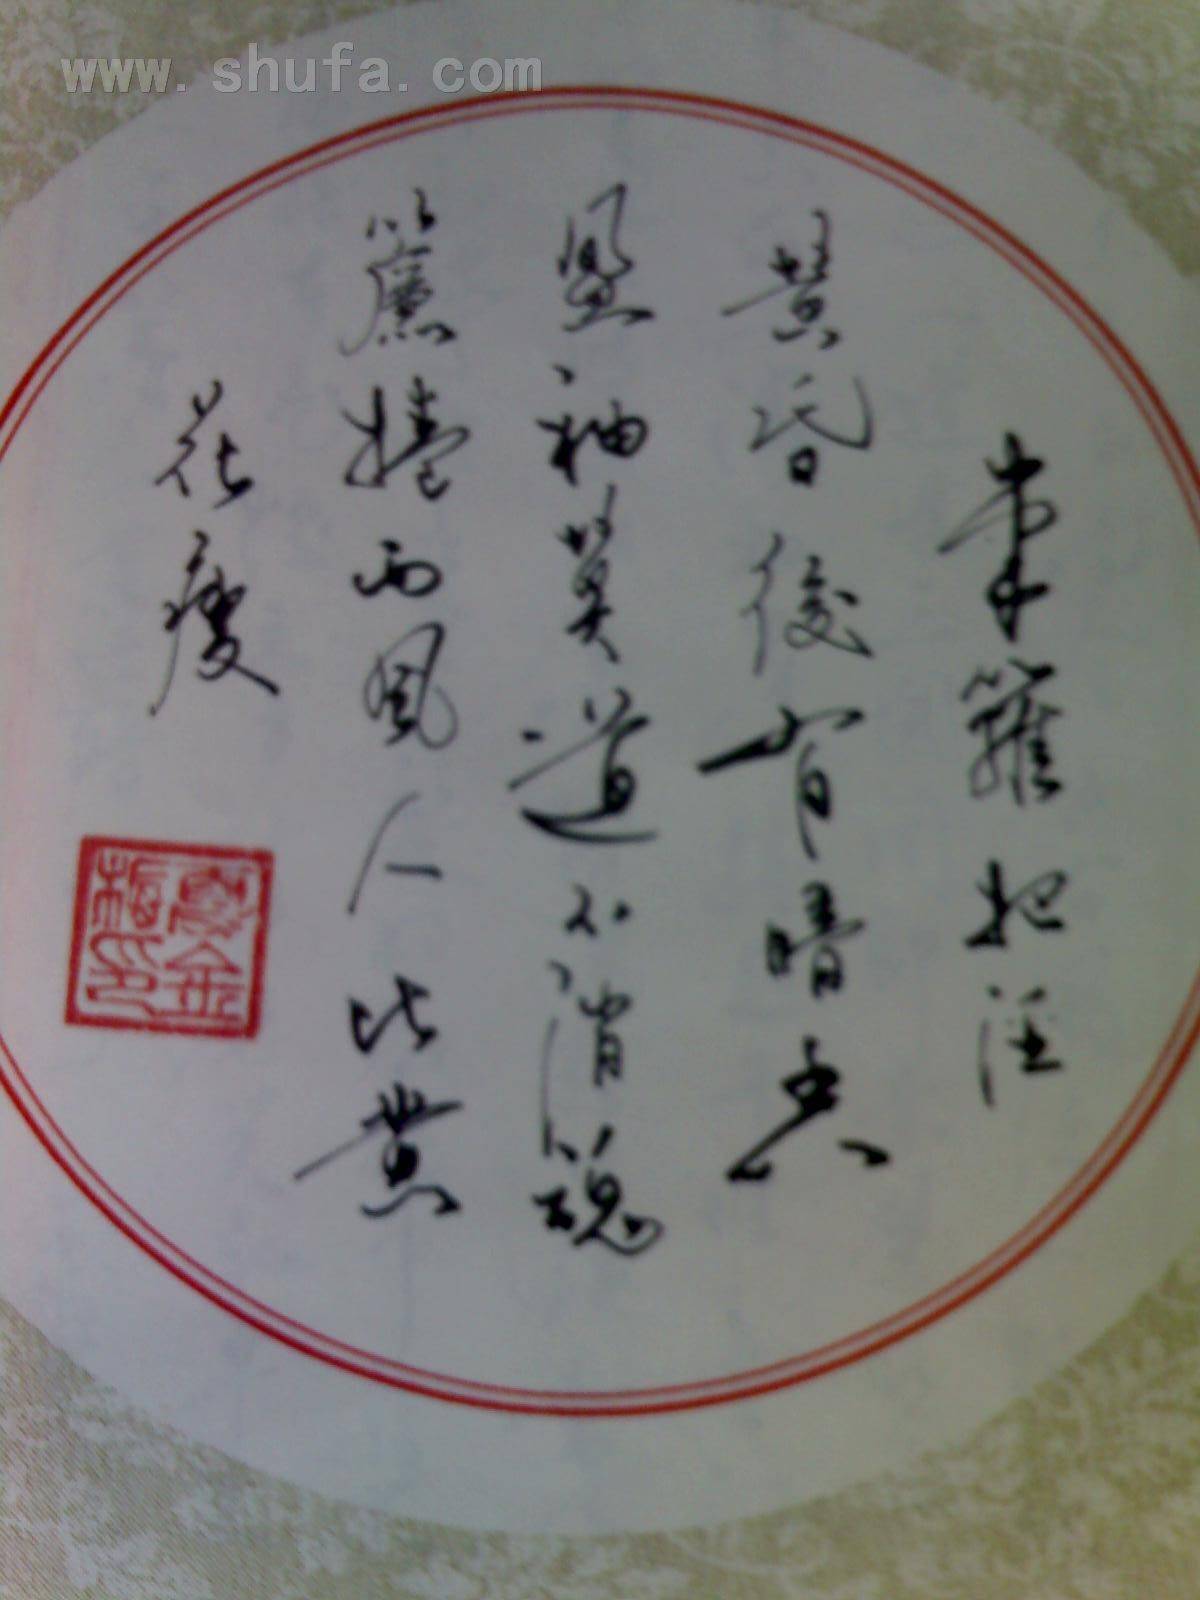 www.shufa.com
東籬把酒
黄昏後有暗香
盈袖莫道不消魂
簾捲西風人比黄
花瘦